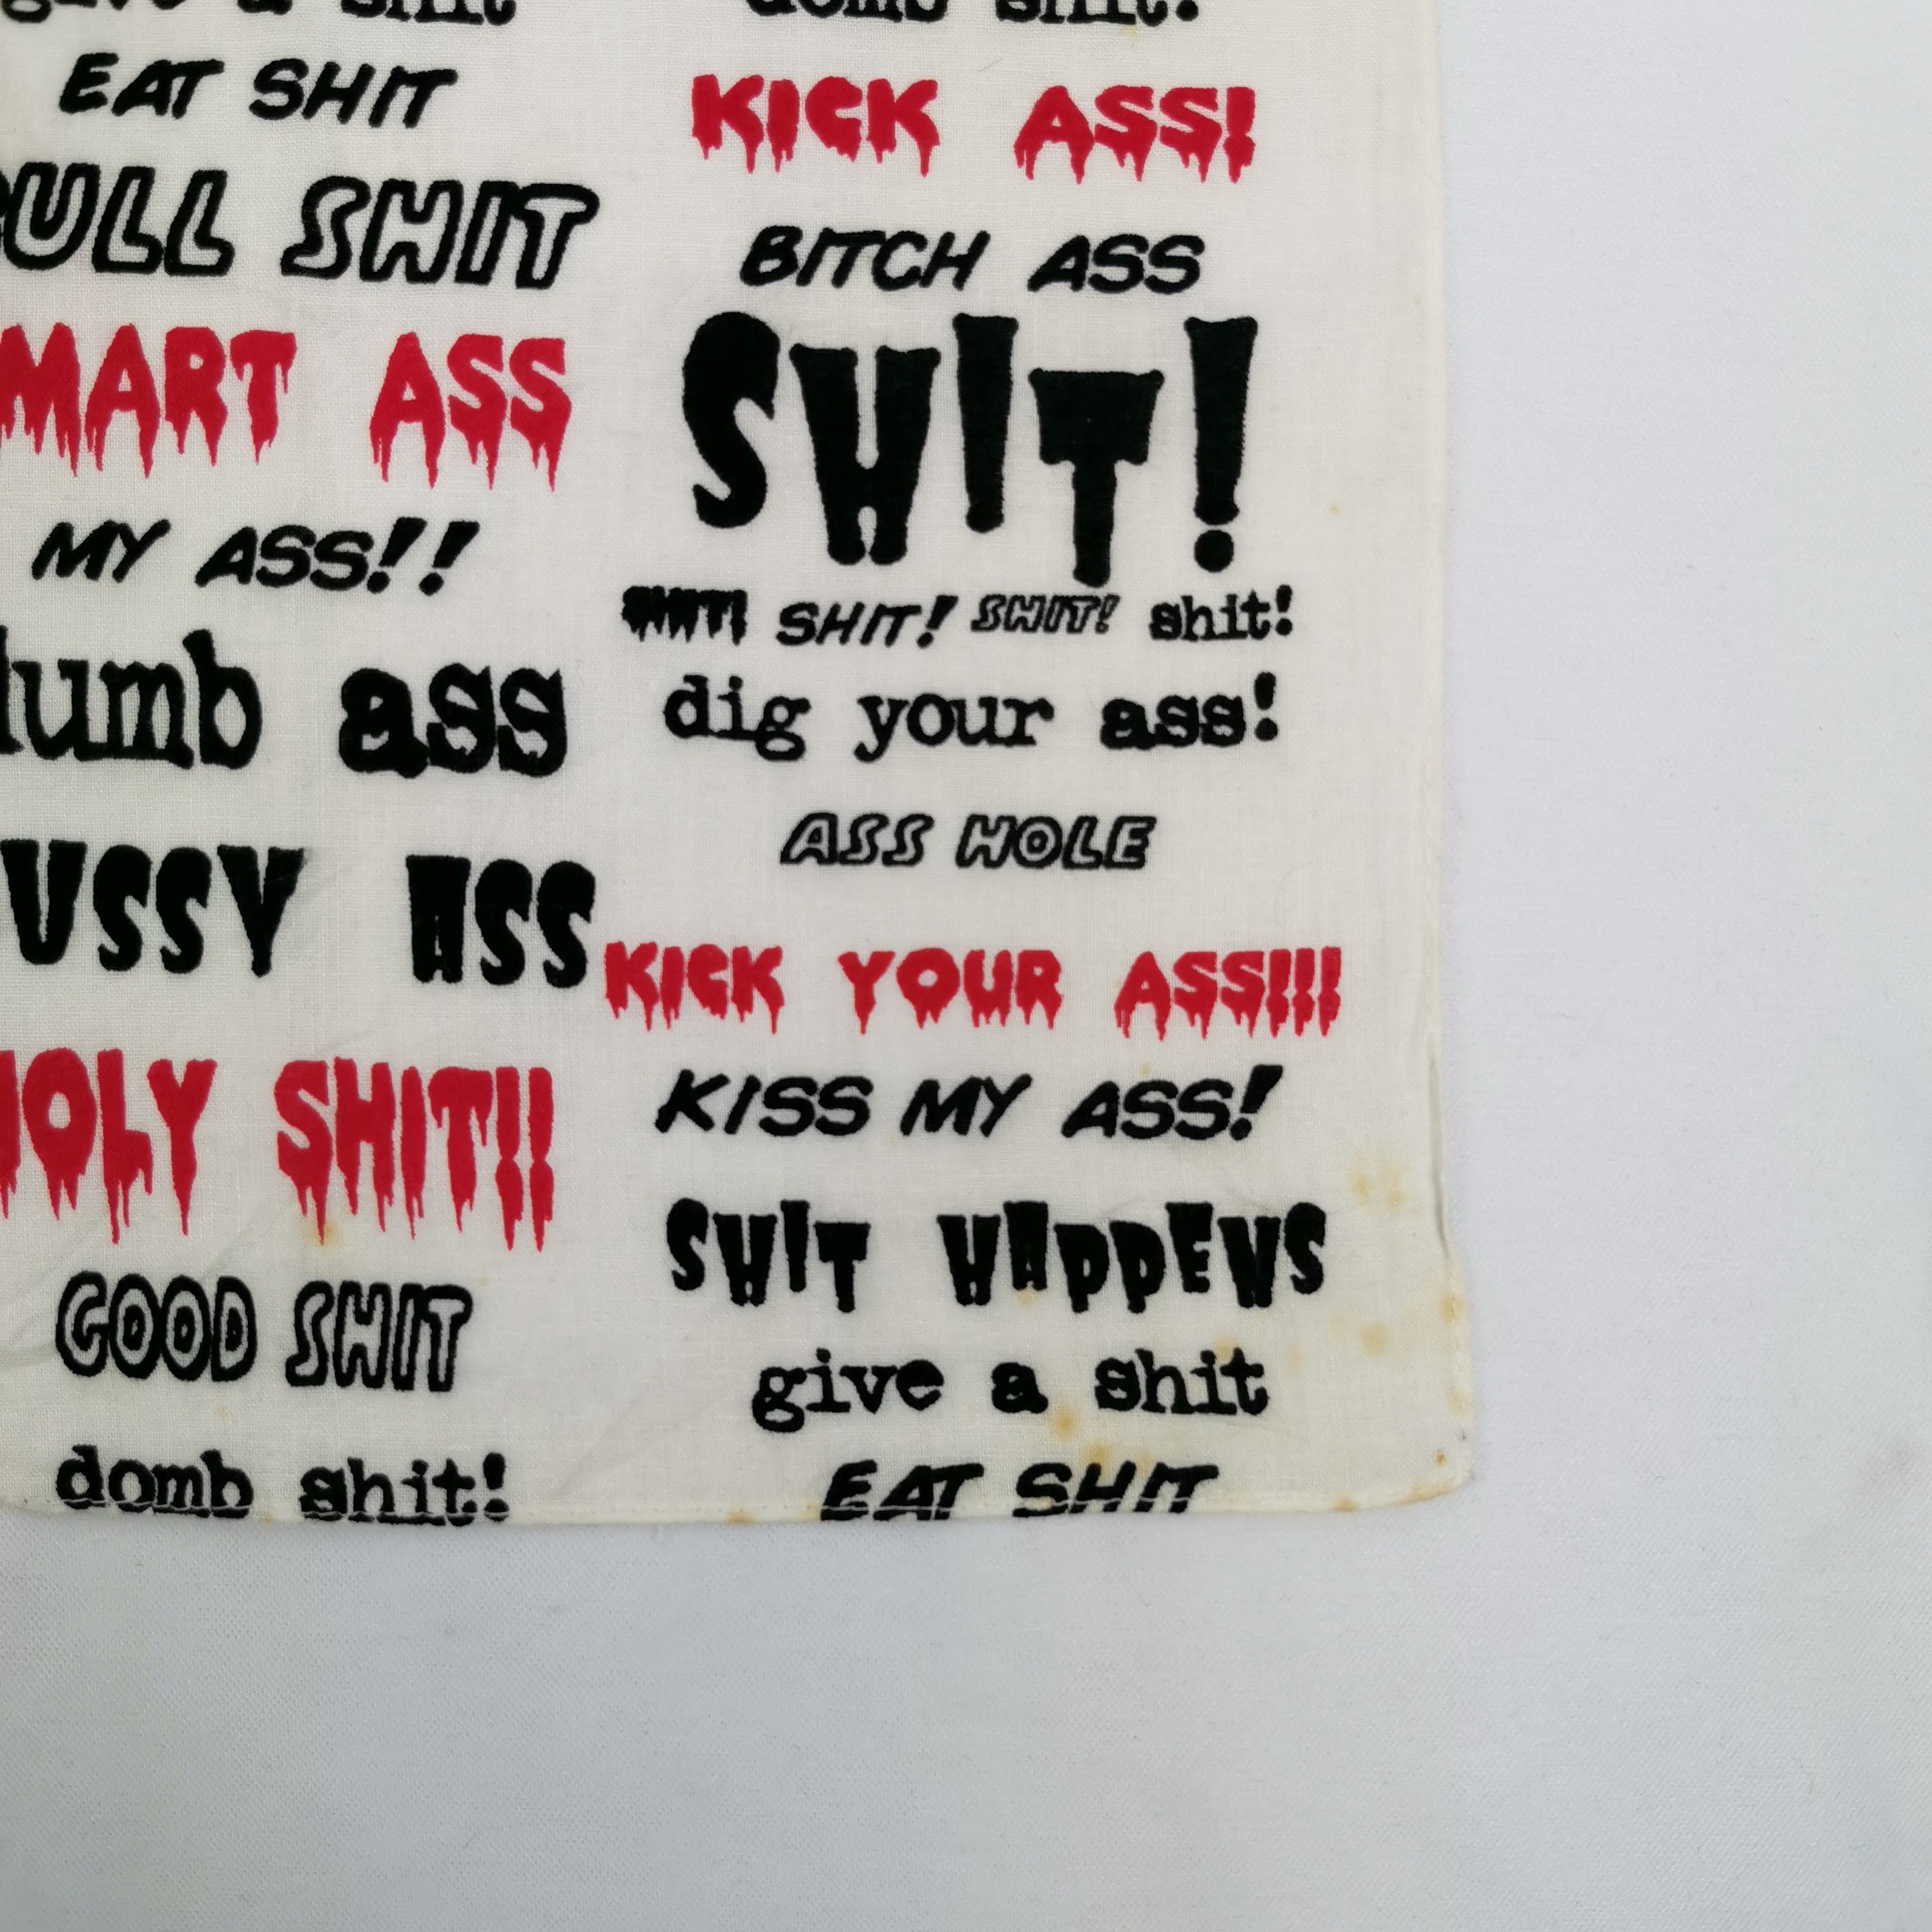 give a shit
EAT SHIT
BULL SHIT
MART ASS
MY ASS!!
dumb ass
USSY ASS
HOLY SHIT!!
GOOD SHIT
domb shit!
domb shit!
KICK ASS!
BITCH ASS
SHIT!
SHIT! SHIT! SHIT! shit!
dig your ass!
ASS HOLE
KICK YOUR ASS!!!
KISS MY ASS!
SHIT HAPPENS
give a shit
EAT SHIT